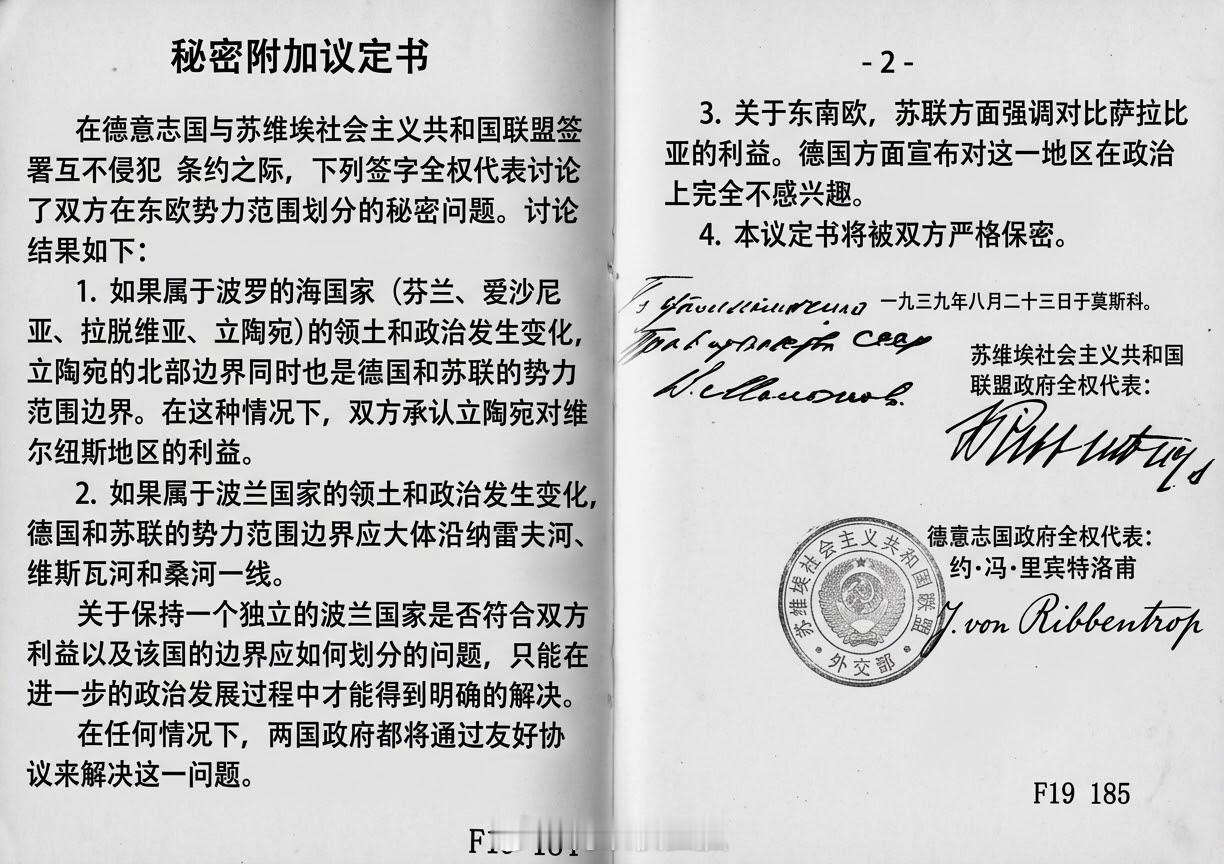 秘密附加议定书
在德意志国与苏维埃社会主义共和国联盟签
署互不侵犯 条约之际，下列签字全权代表讨论
了双方在东欧势力范围划分的秘密问题。讨论
结果如下：
1. 如果属于波罗的海国家（芬兰、爱沙尼
亚、拉脱维亚、立陶宛）的领土和政治发生变化，
立陶宛的北部边界同时也是德国和苏联的势力
范围边界。在这种情况下，双方承认立陶宛对维
尔纽斯地区的利益。
2. 如果属于波兰国家的领土和政治发生变化，
德国和苏联的势力范围边界应大体沿纳雷夫河、
维斯瓦河和桑河一线。
关于保持一个独立的波兰国家是否符合双方
利益以及该国的边界应如何划分的问题，只能在
进一步的政治发展过程中才能得到明确的解决。
在任何情况下，两国政府都将通过友好协
议来解决这一问题。
- 2 -
3. 关于东南欧，苏联方面强调对比萨拉比
亚的利益。德国方面宣布对这一地区在政治
上完全不感兴趣。
4. 本议定书将被双方严格保密。
一九三九年八月二十三日于莫斯科。
苏维埃社会主义共和国
联盟政府全权代表：
德意志国政府全权代表：
约·冯·里宾特洛甫
J. von Ribbentrop
苏维埃社会主义共和国联盟
外交部
F19 185